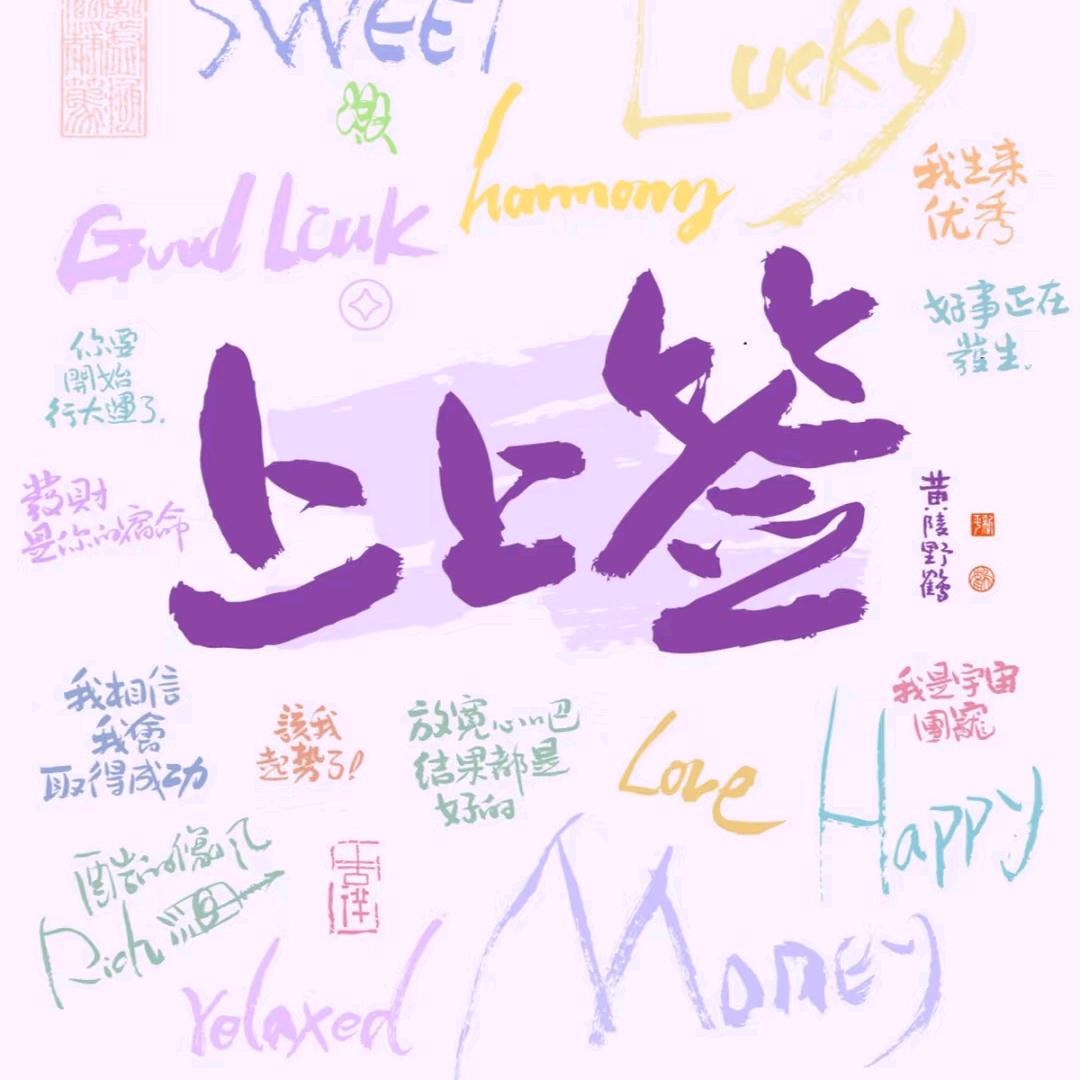 SWEET
Lucky
harmony
Good Luck
我生来
优秀
好事正在
發生.
你要
開始
行大運了.
上上签
發財
是你的宿命
黄陵野鶴
我相信
我會
取得成功
該我
起勢了!
放寬心吧
結果都是
好的
Love
我是宇宙
團寵
Happy
Rich
relaxed
Money